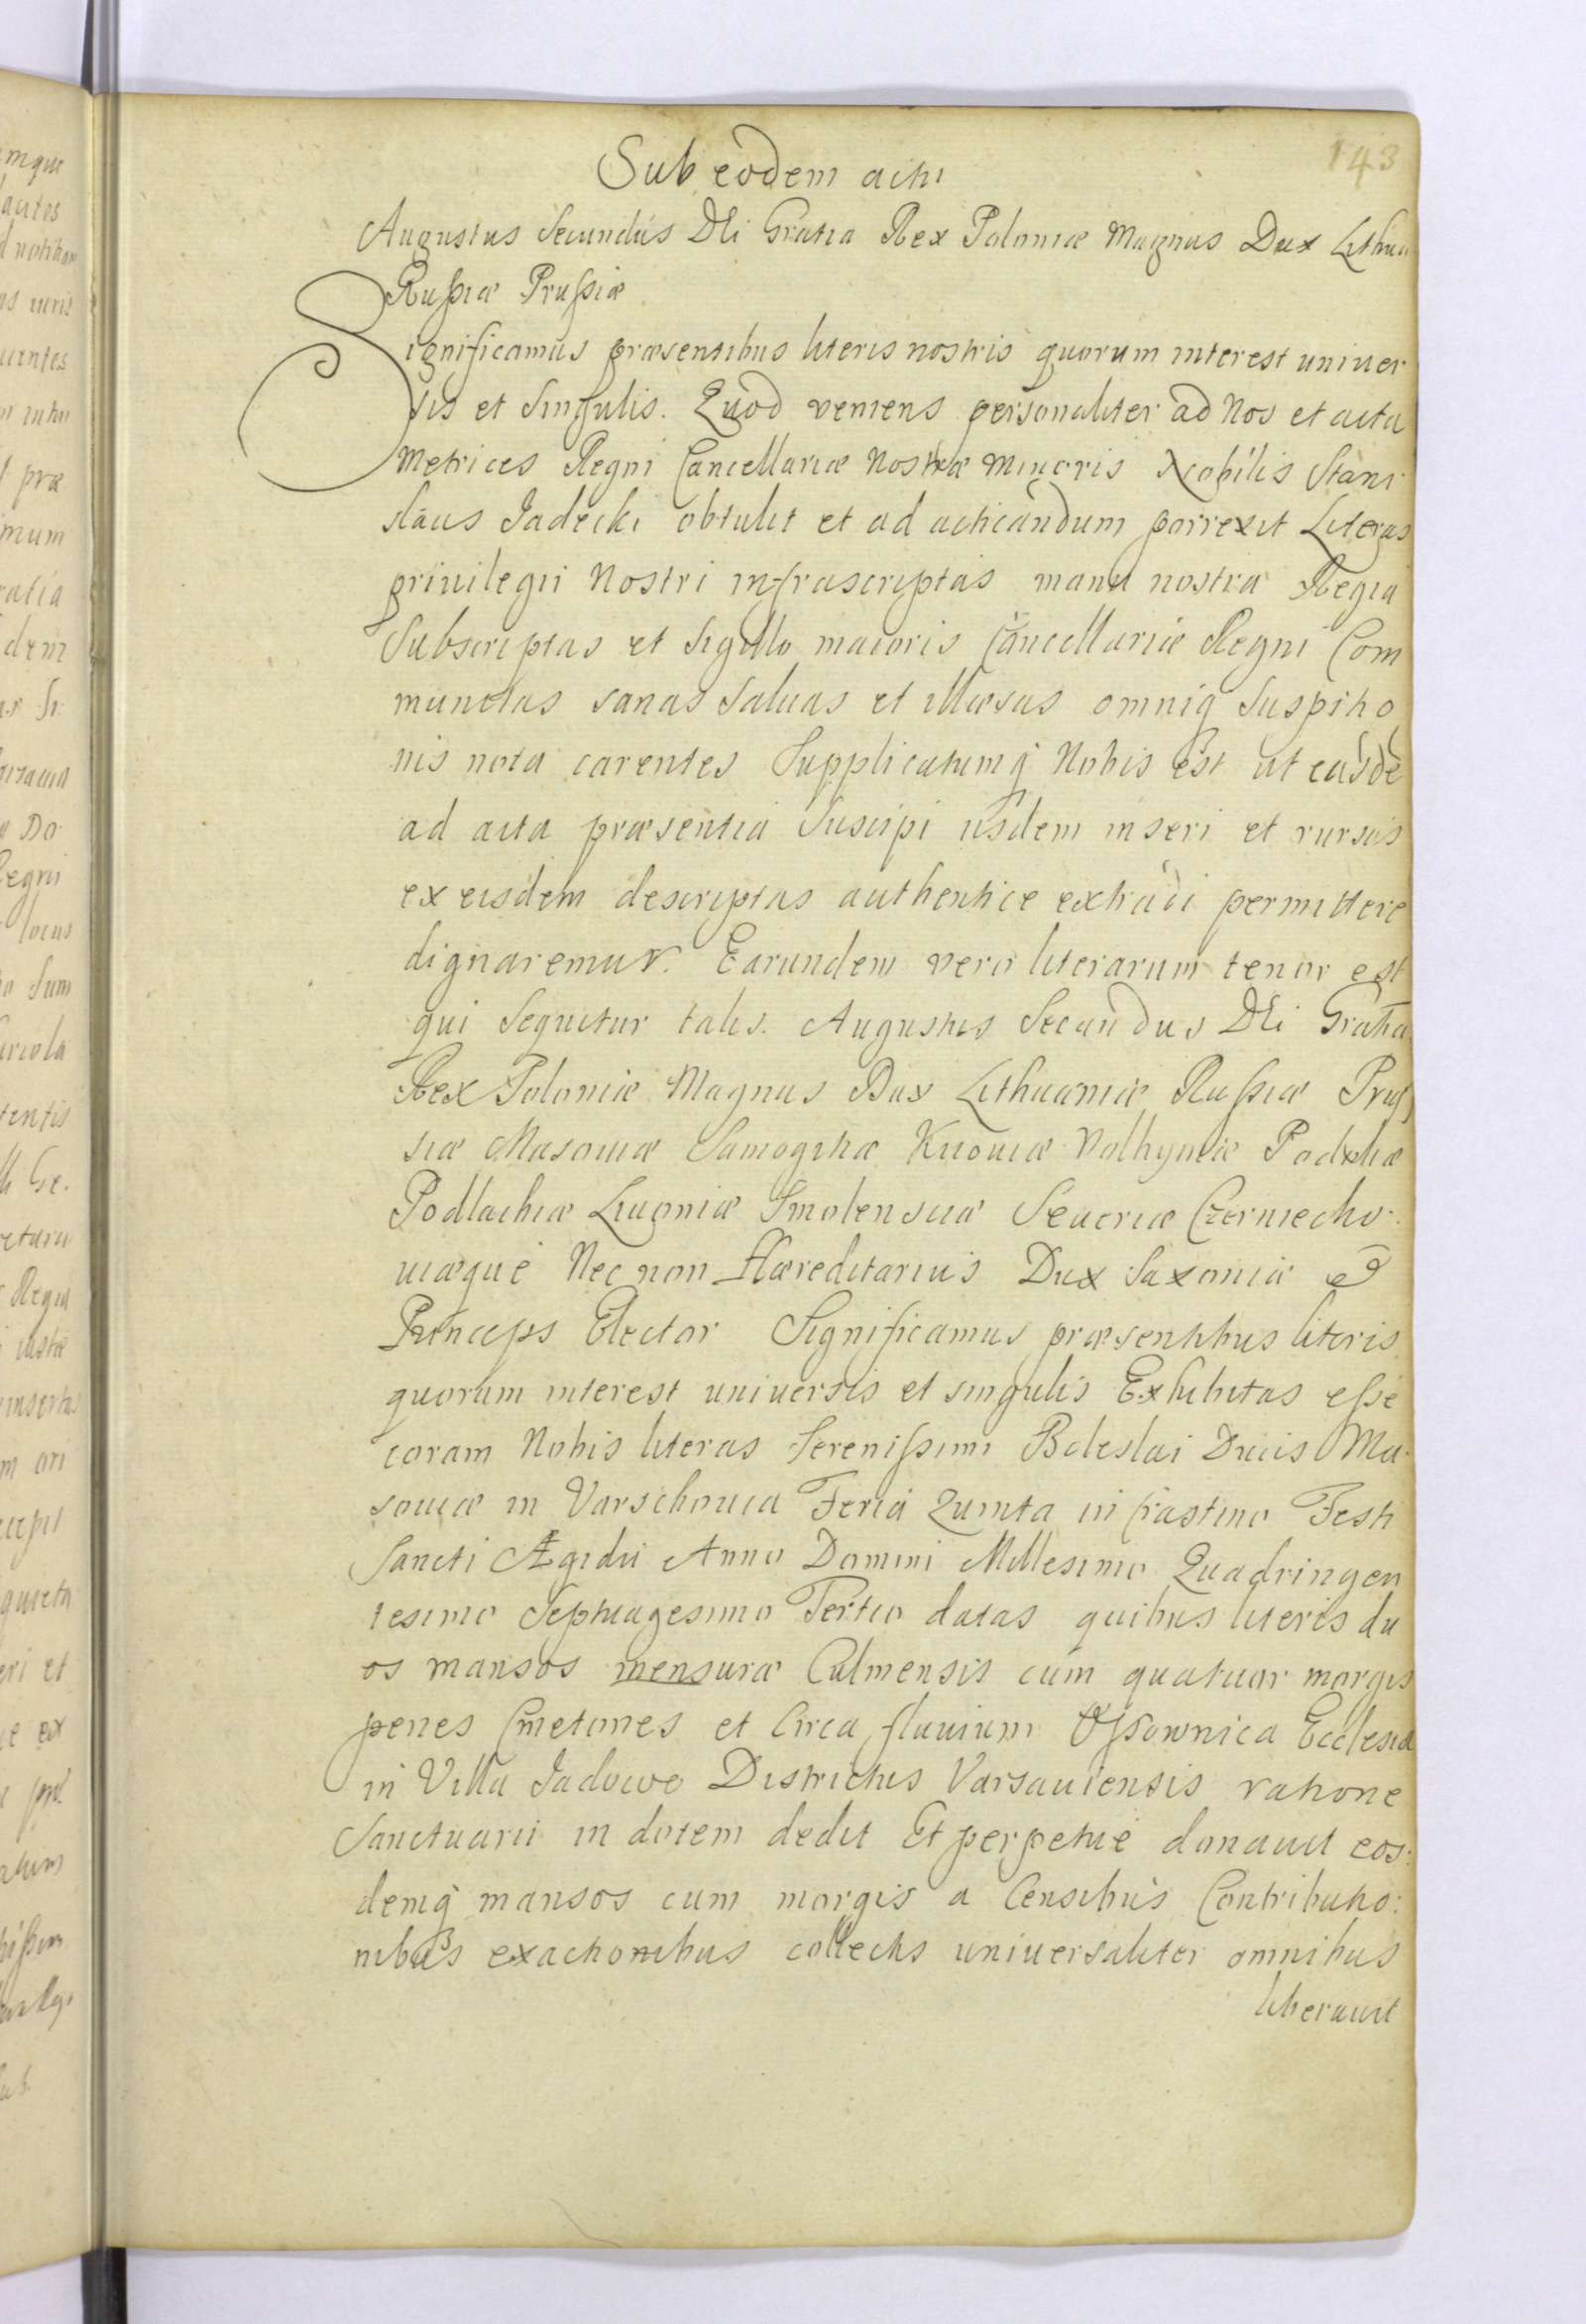 143
Sub eodem acti
Augustus Secundus Dei Gratia Rex Poloniæ Magnus Dux Lithua
Russiæ Prussiæ
Significamus præsentibus literis nostris quorum interest univer
sis et Singulis. Quod veniens personaliter ad Nos et acta
Metrices Regni Cancellariæ Nostræ Minoris Nobilis Stani
slaus Jadecki obtulit et ad acticandum porrexit Literas
privilegii Nostri infrascriptas manu nostra Regia
Subscriptas et Sigillo maioris Cancellariæ Regni Com
munitas sanas Salvas et illæsas omniq Suspitio
nis nota carentes Supplicatumq Nobis est ut easdē
ad acta præsentia Suscipi iisdem inseri et rursus
ex eisdem descriptas authentice extradi permittere
dignaremur. Earundem vero literarum tenor est
qui Sequitur talis. Augustus Secundus Dei Gratia
Rex Poloniæ Magnus Dux Lithuaniæ Russiæ Prus
siæ Masoviæ Samogitiæ Kijoviæ Volhyniæ Podoliæ
Podlachiæ Livoniæ Smolensciæ Severiæ Czerniecho
viæque Nec non Hæreditarius Dux Saxoniæ et
Princeps Elector Significamus præsentibus literis
quorum interest universis et singulis Exhibitas esse
coram Nobis literas Serenissimi Boleslai Ducis Ma
soviæ in Varschovia Feria Quinta in Crastino Festi
Sancti Ægidii Anno Domini Millesimo Quadringen
tesimo Septuagesimo Tertio datas quibus literis du
os mansos mensuræ Culmensis cum quatuor morgis
penes Cmetones et Circa fluvium Ossownica Ecclesiæ
in Villa Jadowo Districtus Varsaviensis ratione
Sanctuarii in dotem dedit Et perpetue donavit eos:
demq mansos cum morgis a Censibus Contributio:
nibus exactionibus collectis universaliter omnibus
liberavit